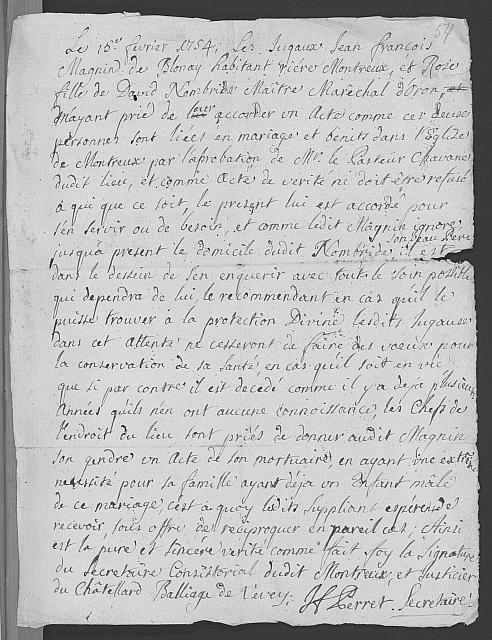 54
Le 15er fevrier 1754, les Jugaux Jean françois
Magnin de Blonay habitant riére Montreux, et Rose
fille de David Nombride Maitre Maréchal d'Oron,
m'ayant prié de leur accorder un Acte comme ces deux
personnes sont liées en mariage et benits dans l'Eglize
de Montreux par l'aprobation de Mr. le Pasteur Chavane
dudit lieu, et comme Acte de verité ne doit être refusé
à qui que ce soit, le present lui est accordé pour
s'en servir ou de besoin, et comme ledit Magnin ignore
jusqu'à présent le domicile dudit Nombride son beau Pere, il est
dans le dessein de s'en enquerir avec tout le soin possible
qui dependra de lui, le recommendant en cas qu'il le
puisse trouver à la protection Divine lesdits Jugaux
dans cet Attente ne cesseront de faire des voeux pour
la conservation de sa Santé, en cas qu'il soit en vie,
que si par contre il est décédé comme il y a deja plusieurs
Années qu'ils n'en ont aucune connoissance, les Chefs de
l'endroit du lieu sont priés de donner audit Magnin
son gendre un Acte de son mortuaire, en ayant une extrême
necessité pour sa famille ayant déja un Enfant mâle
de ce mariage, c'est à quoy ledit Suppliant espérende
recevoir, sous offre de réciproquer en pareil cas; Ainsi
est la pure et sincere verité comme fait foy la Signature
du Secretaire Consistorial dudit Montreux, et Justicier
du Châtellard Balliage de Vevey.
Perret Secretaire